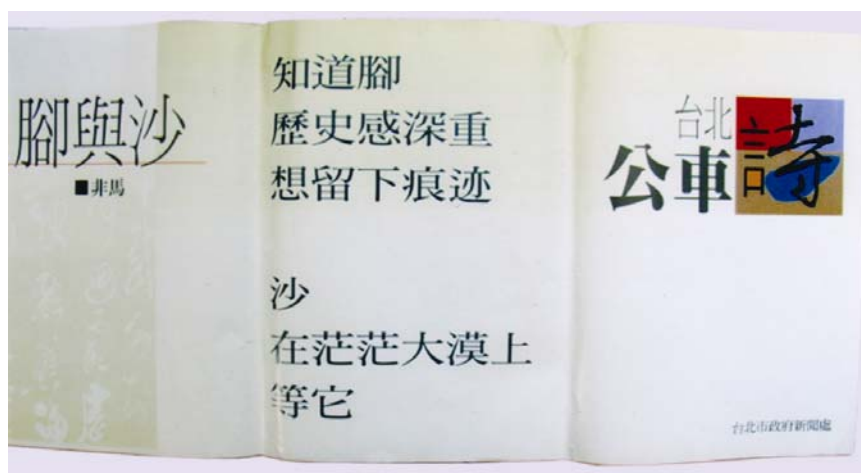 腳與沙
■非馬
知道腳
歷史感深重
想留下痕迹
沙
在茫茫大漠上
等它
台北
公車詩
台北市政府新聞處